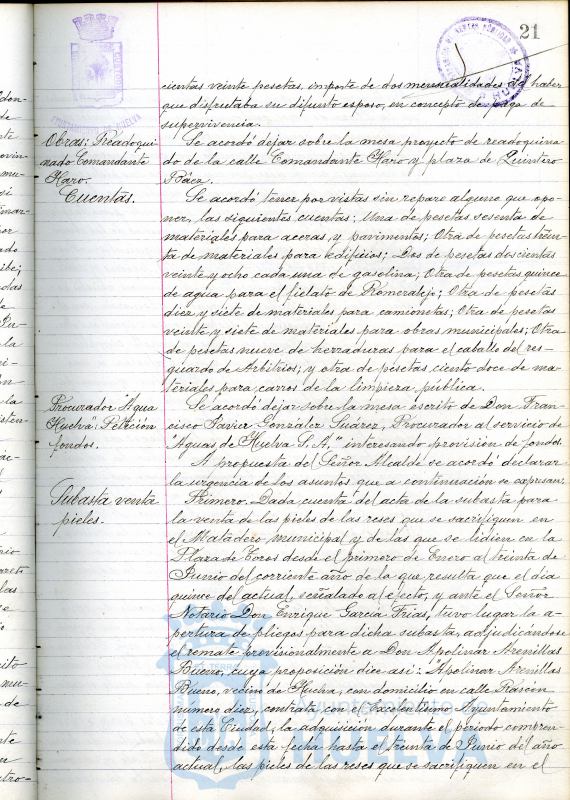 21
cientas veinte pesetas, importe de dos mensualidades del haber
que disfrutaba su difunto esposo, en concepto de paga de
supervivencia.
Obras: Readoqui-
nado Comandante
Haro.
Se acordó dejar sobre la mesa proyecto de readoquina
do de la calle Comandante Haro y plaza de Quintero
Báez.
Cuentas.
Se acordó tener por vistas sin reparo alguno que opo-
ner, las siguientes cuentas: Una de pesetas sesenta de
materiales para aceras y pavimentos; Otra de pesetas trein-
ta de materiales para edificios; Dos de pesetas doscientas
veinte y ocho cada una de gasolina; Otra de pesetas quince
de agua para el fielato de Romeralejo; Otra de pesetas
diez y siete de materiales para camionetas; Otra de pesetas
veinte y siete de materiales para obras municipales; Otra
de pesetas nueve de herraduras para el caballo del res-
guardo de Arbitrios; y otra de pesetas ciento doce de ma-
teriales para carros de la limpieza pública.
Procurador "Agua
Huelva": Petición
fondos.
Se acordó dejar sobre la mesa escrito de Don Fran-
cisco Javier González Suárez, Procurador al servicio de
"Aguas de Huelva S.A." interesando provisión de fondos.
A propuesta del Señor Alcalde se acordó declarar
la urgencia de los asuntos que a continuación se expresan:
Subasta venta
pieles.
Primero. Dada cuenta del acta de la subasta para
la venta de las pieles de las reses que se sacrifiquen en
el Matadero municipal y de las que se lidien en la
Plaza de Toros desde el primero de Enero al treinta de
Junio del corriente año de la que resulta que el día
quince del actual, señalado al efecto, y ante el Señor
Notario Don Enrique García Frías, tuvo lugar la a-
pertura de pliegos para dicha subasta, adjudicándose
el remate provisionalmente a Don Apolinar Arenillas
Bueno, cuya proposición dice así: "Apolinar Arenillas
Bueno, vecino de Huelva, con domicilio en calle Rascon
número diez, contrata con el Excelentísimo Ayuntamiento
de esta Ciudad, la adquisición durante el período compren-
dido desde esta fecha hasta el treinta de Junio del año
actual, las pieles de las reses que se sacrifiquen en el